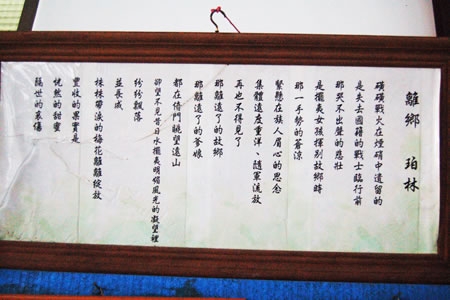 離鄉 珀林
磺磺戰火在煙硝中遺留的
是失去國籍的戰士臨行前
那哭不出聲的悲壯
是擺夷女孩揮別故鄉時
那一手勢的蒼涼
緊懸在族人眉心的思念
集體遠度重洋、隨軍流放
再也不得見了
那離遠了的故鄉
那離遠了的爹娘
都在倚門曉望遠山
卻望不見昔日水擺夷明媚風光的凝望裡
紛紛飄落
並長成
株株帶淚的梅花離離綻放
豐收的果實是
恍然的甜蜜
隔世的哀傷